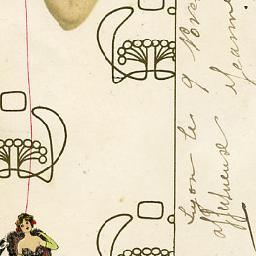 Lyon les 9 Nove
affectueuse
Jeanne